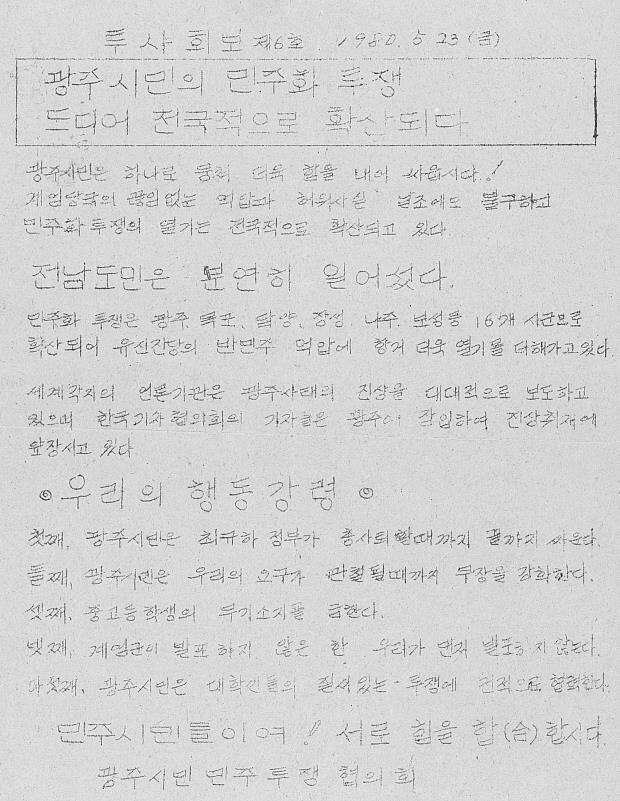 투사회보 제6호 1980. 5. 23 (금)
광주시민의 민주화 투쟁
드디어 전국적으로 확산되다
광주시민은 하나로 뭉쳐 더욱 힘을 내어 싸웁시다!
계엄당국의 끊임없는 억압과 허위사실 날조에도 불구하고
민주화 투쟁의 열기는 전국적으로 확산되고 있다
전남도민은 분연히 일어섰다.
민주화 투쟁은 광주. 목포. 담양. 장성. 나주. 보성등 16개 시군으로
확산되어 유신잔당의 반민주 억압에 항거 더욱 열기를 더해가고있다.
세계각지의 언론기관은 광주사태의 진상을 대대적으로 보도하고
있으며 한국기자협의회의 기자들은 광주에 잠입하여 진상취재에
앞장서고 있다
◎ 우리의 행동강령 ◎
첫째, 광주시민은 최규하 정부가 총사퇴할때까지 끝까지 싸운다.
둘째, 광주시민은 우리의 요구가 관철될때까지 무장을 강화한다.
셋째. 중고등학생의 무기소지를 금한다.
넷째, 계엄군이 발포하지 않은 한 우리가 먼저 발포하지 않는다.
다섯째, 광주시민은 대학인들의 질서있는 투쟁에 전적으로 협력한다.
민주시민들이여! 서로 힘을 합(合)합시다.
광주시민 민주투쟁 협의회